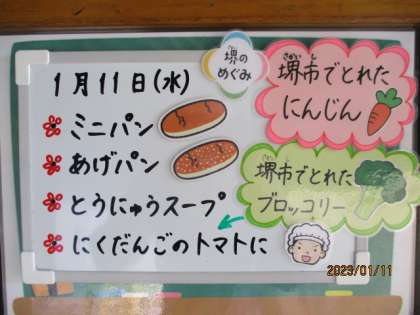 堺の
めぐみ
1月11日(水)
ミニパン
あげパン
とうにゅうスープ
にくだんごのトマトに
堺市でとれた
にんじん
堺市でとれた
ブロッコリー
2023/01/11